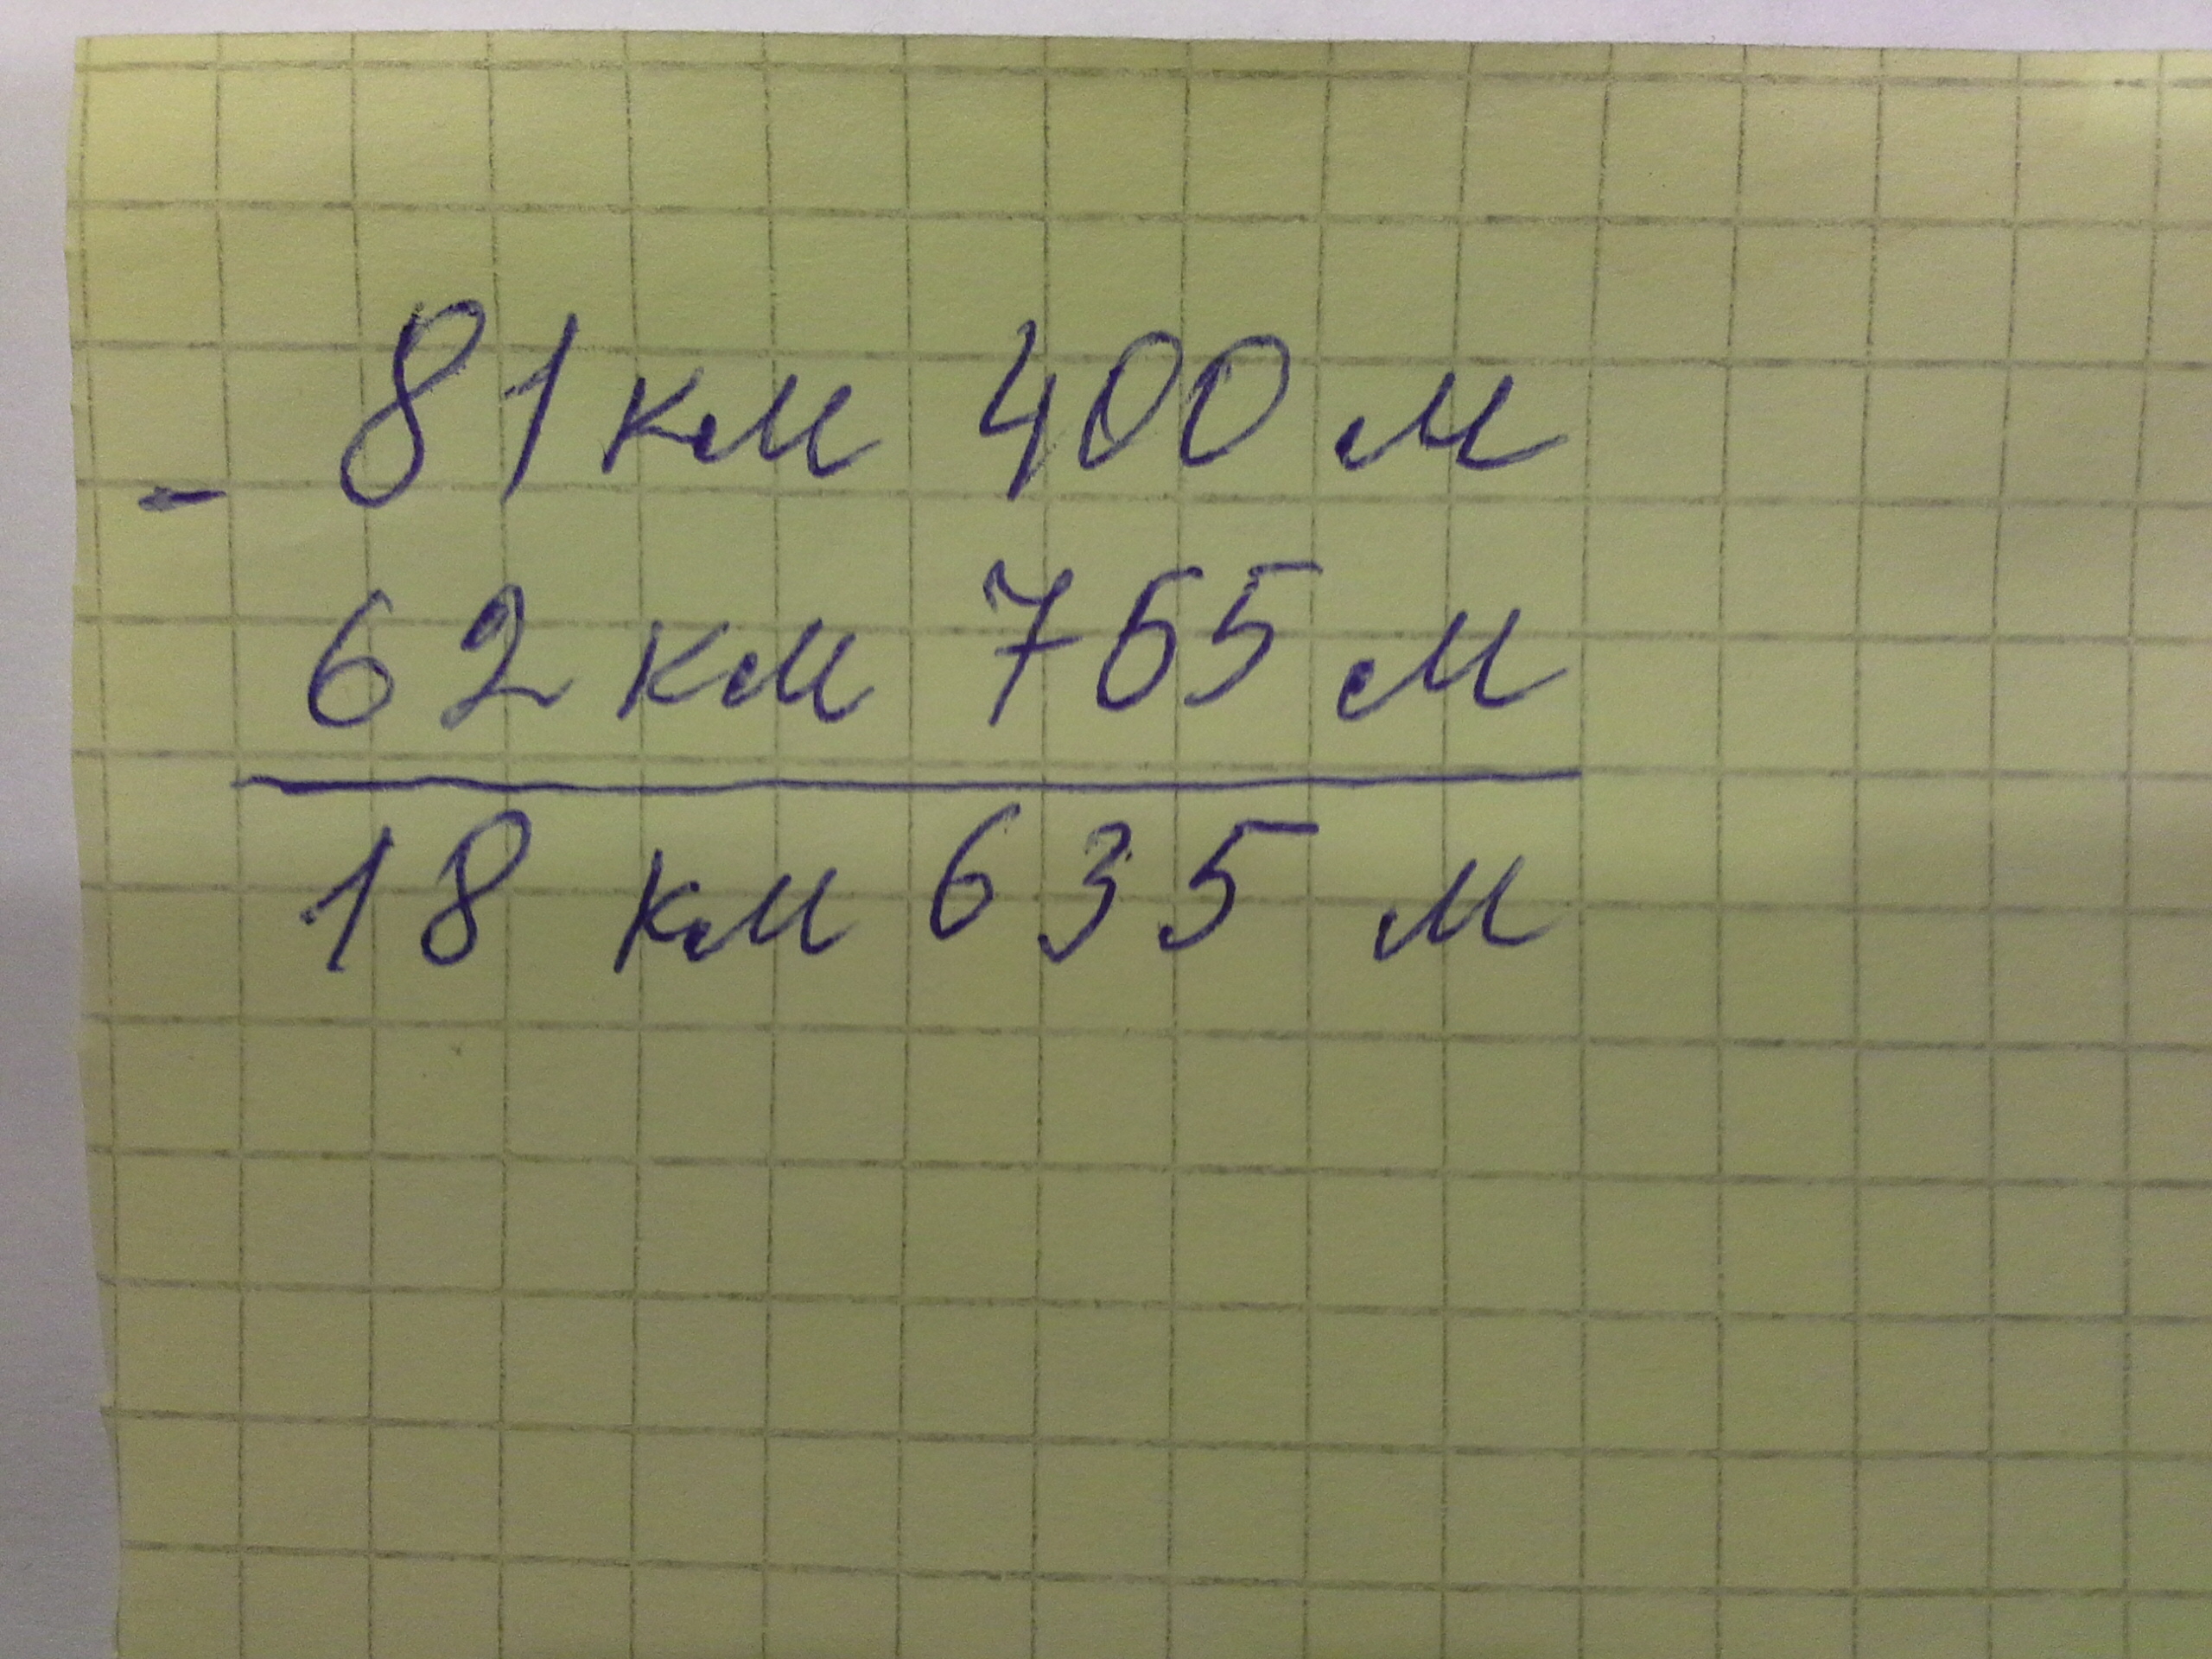 - 81 км 400 м
62 км 765 м
18 км 635 м